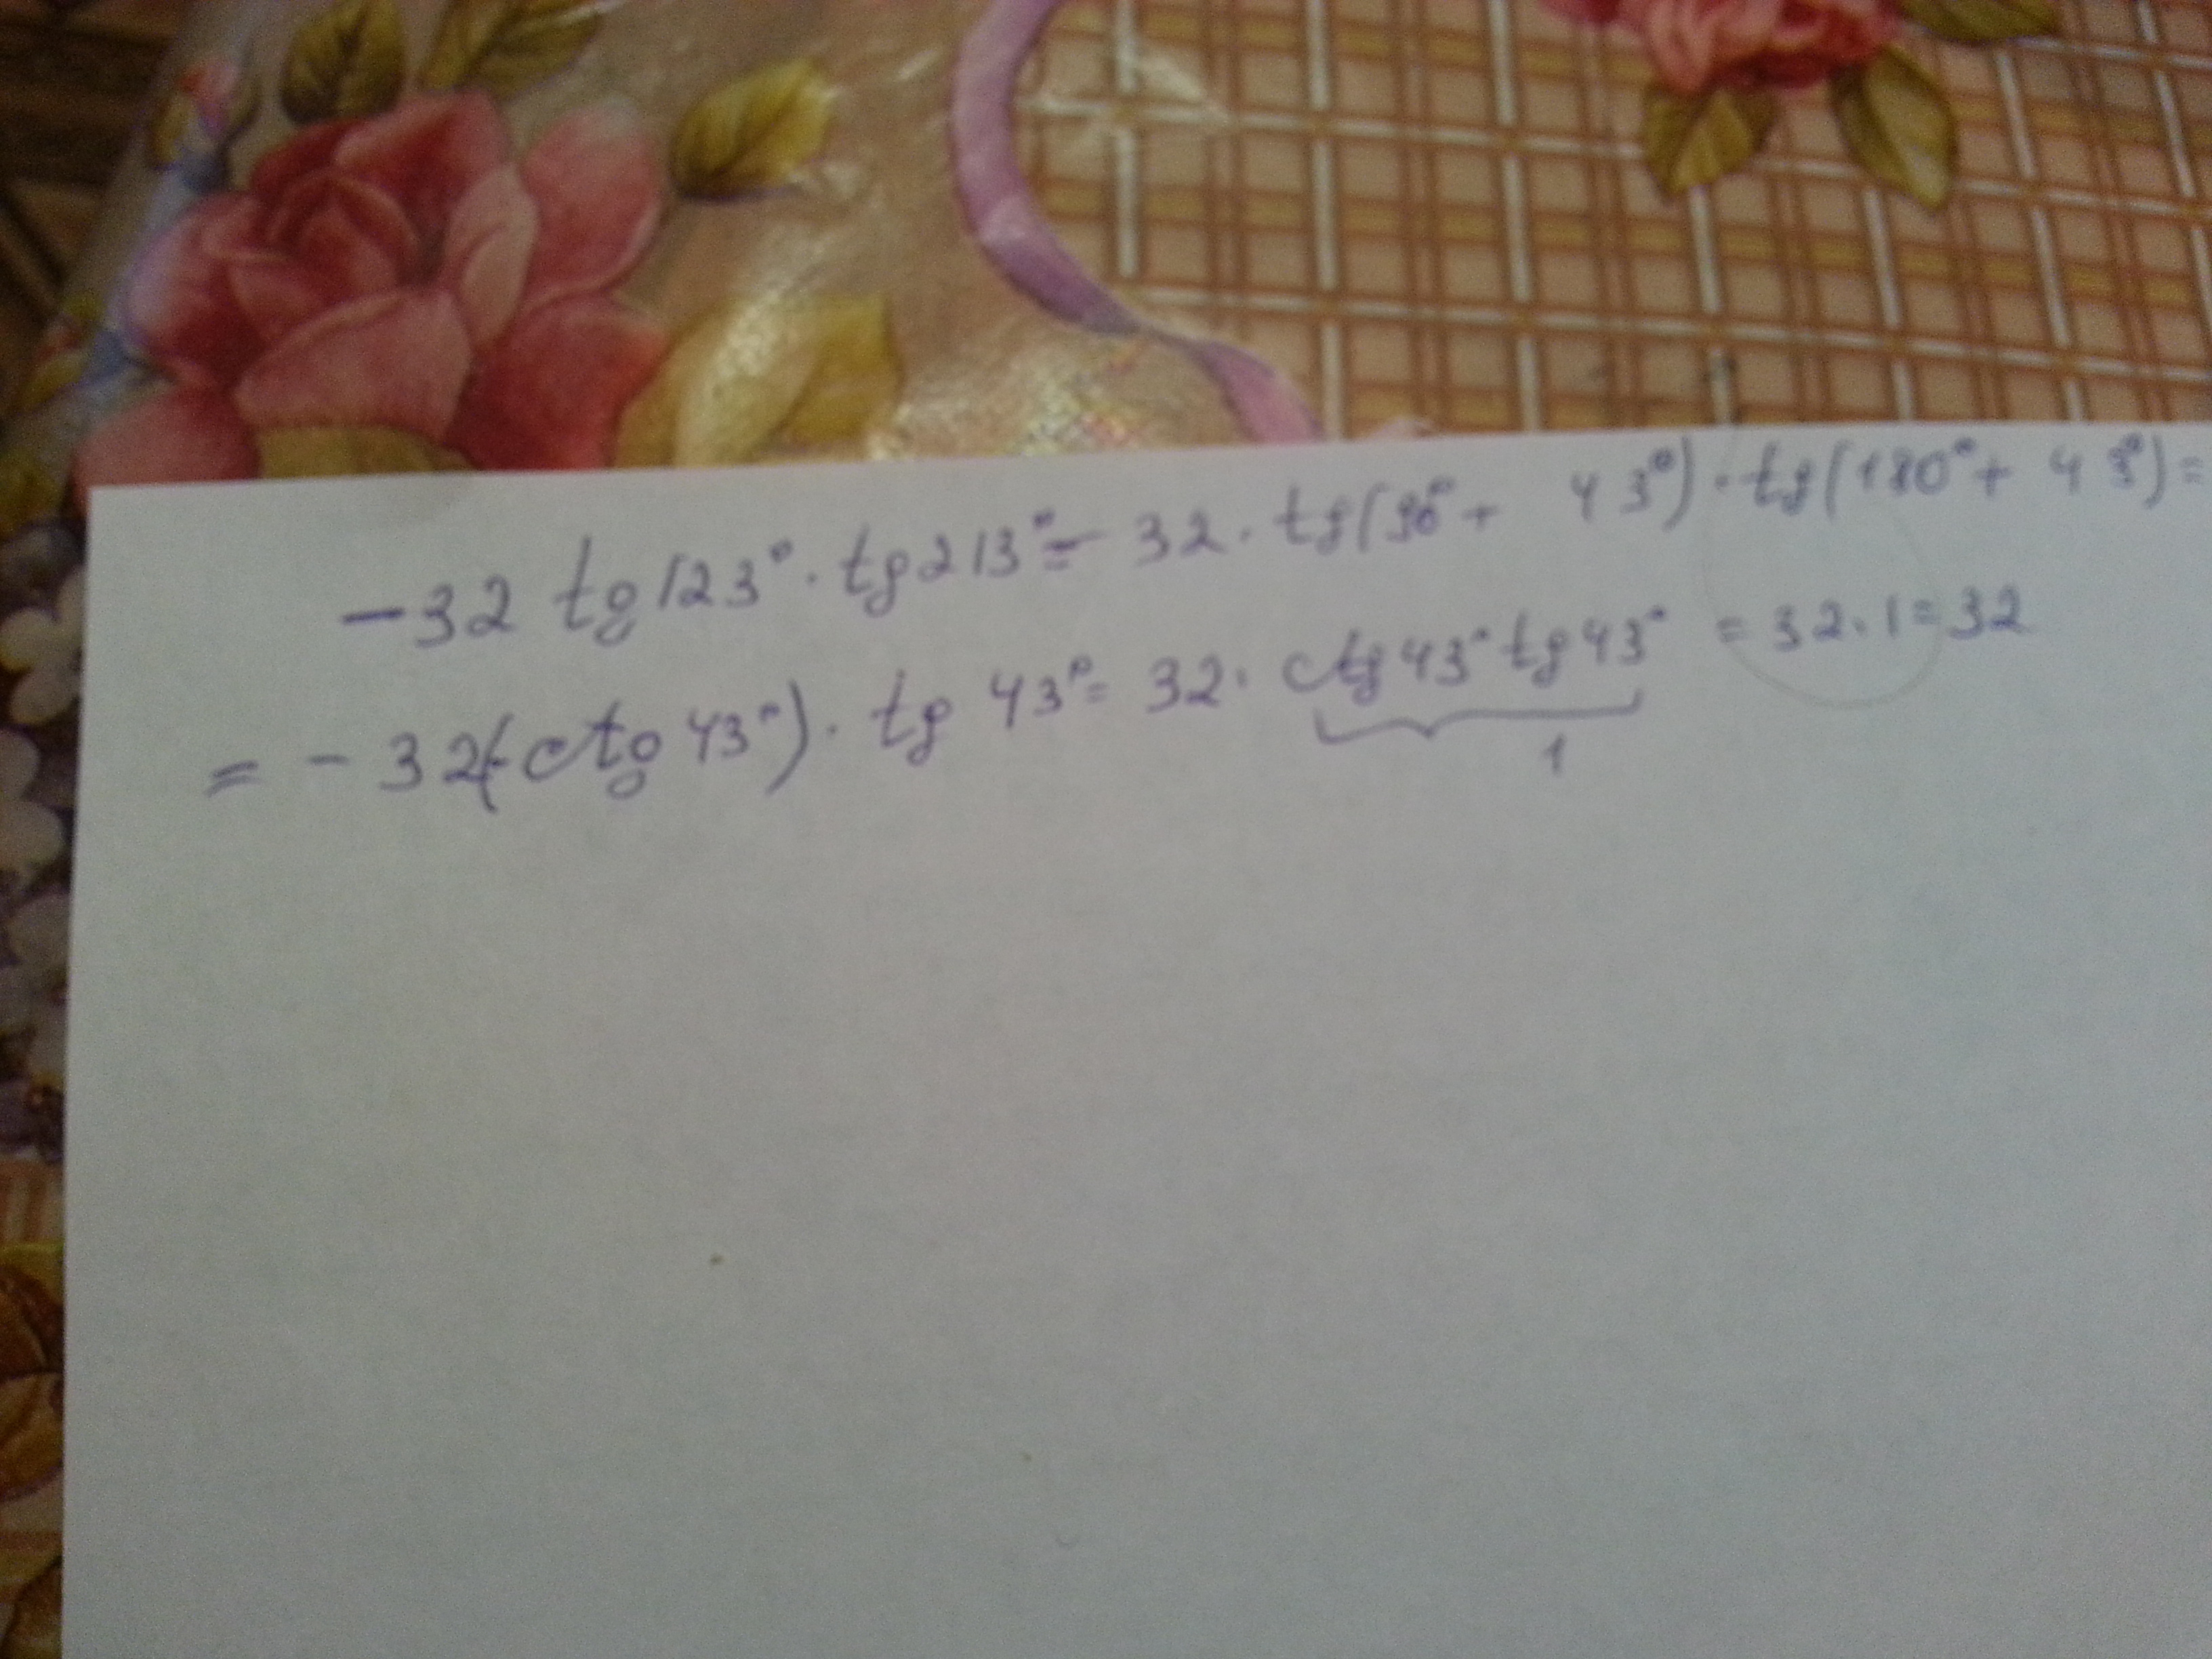 -32 tg 123° · tg 213° = - 32 · tg(90° + 43°) · tg(180° + 43°) =
= - 32(-ctg 43°) · tg 43° = 32 · ctg 43° tg 43° = 32 · 1 = 32
1